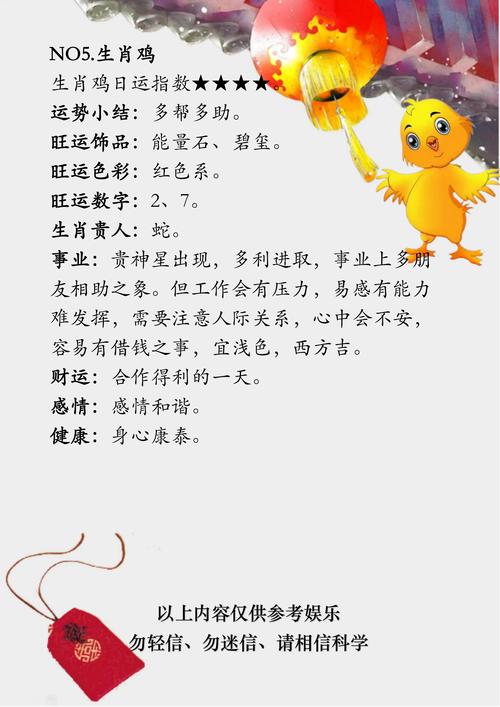 NO5.生肖鸡
生肖鸡日运指数★★★★。
运势小结：多帮多助。
旺运饰品：能量石、碧玺。
旺运色彩：红色系。
旺运数字：2、7。
生肖贵人：蛇。
事业：贵神星出现，多利进取，事业上多朋
友相助之象。但工作会有压力，易感有能力
难发挥，需要注意人际关系，心中会不安，
容易有借钱之事，宜浅色，西方吉。
财运：合作得利的一天。
感情：感情和谐。
健康：身心康泰。
以上内容仅供参考娱乐
勿轻信、勿迷信、请相信科学